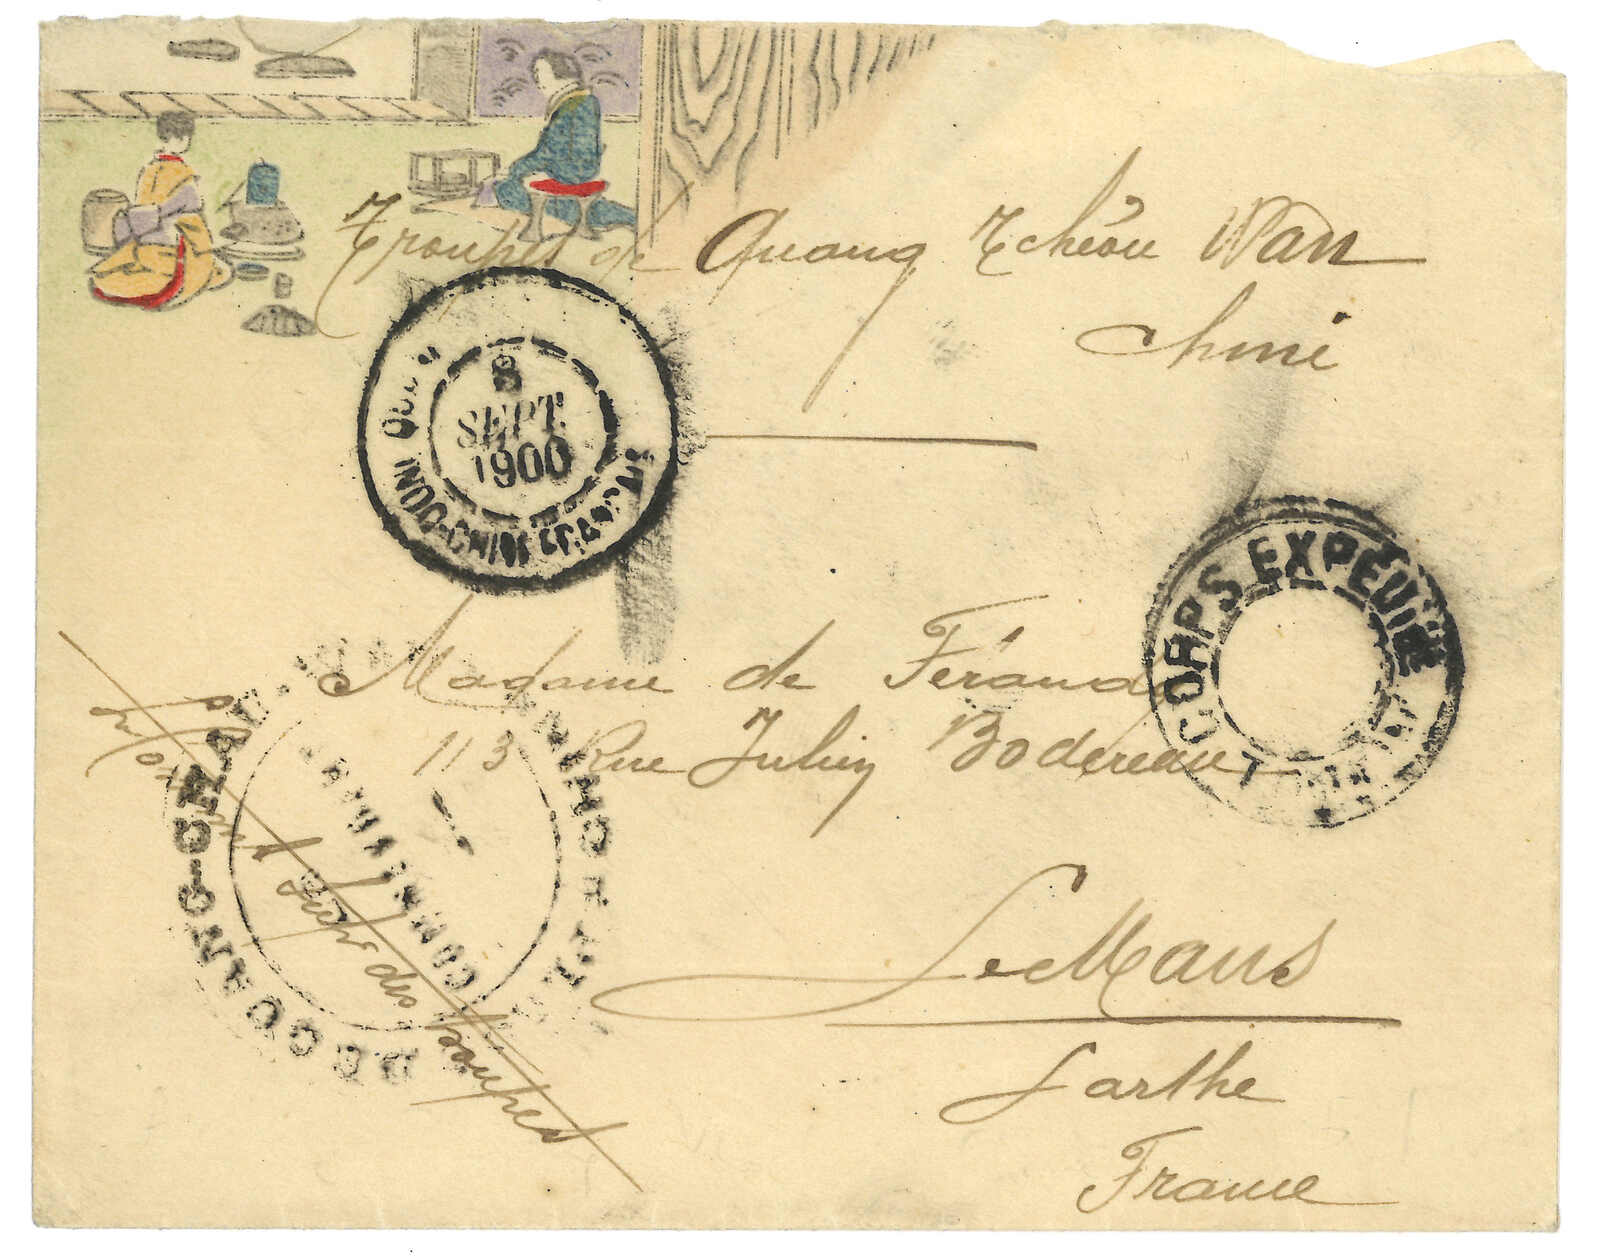 Troupes de Quang Tchéou Wan
Chine
8
SEPT.
1900
INDO-CHINE FRANÇAISE
CORPS EXPÉDIT
Madame de Férand
113 Rue Julien Bodereau
Le Mans
Sarthe
France
des troupes
DE QUANG-TCHÉOU
COMMANDANT